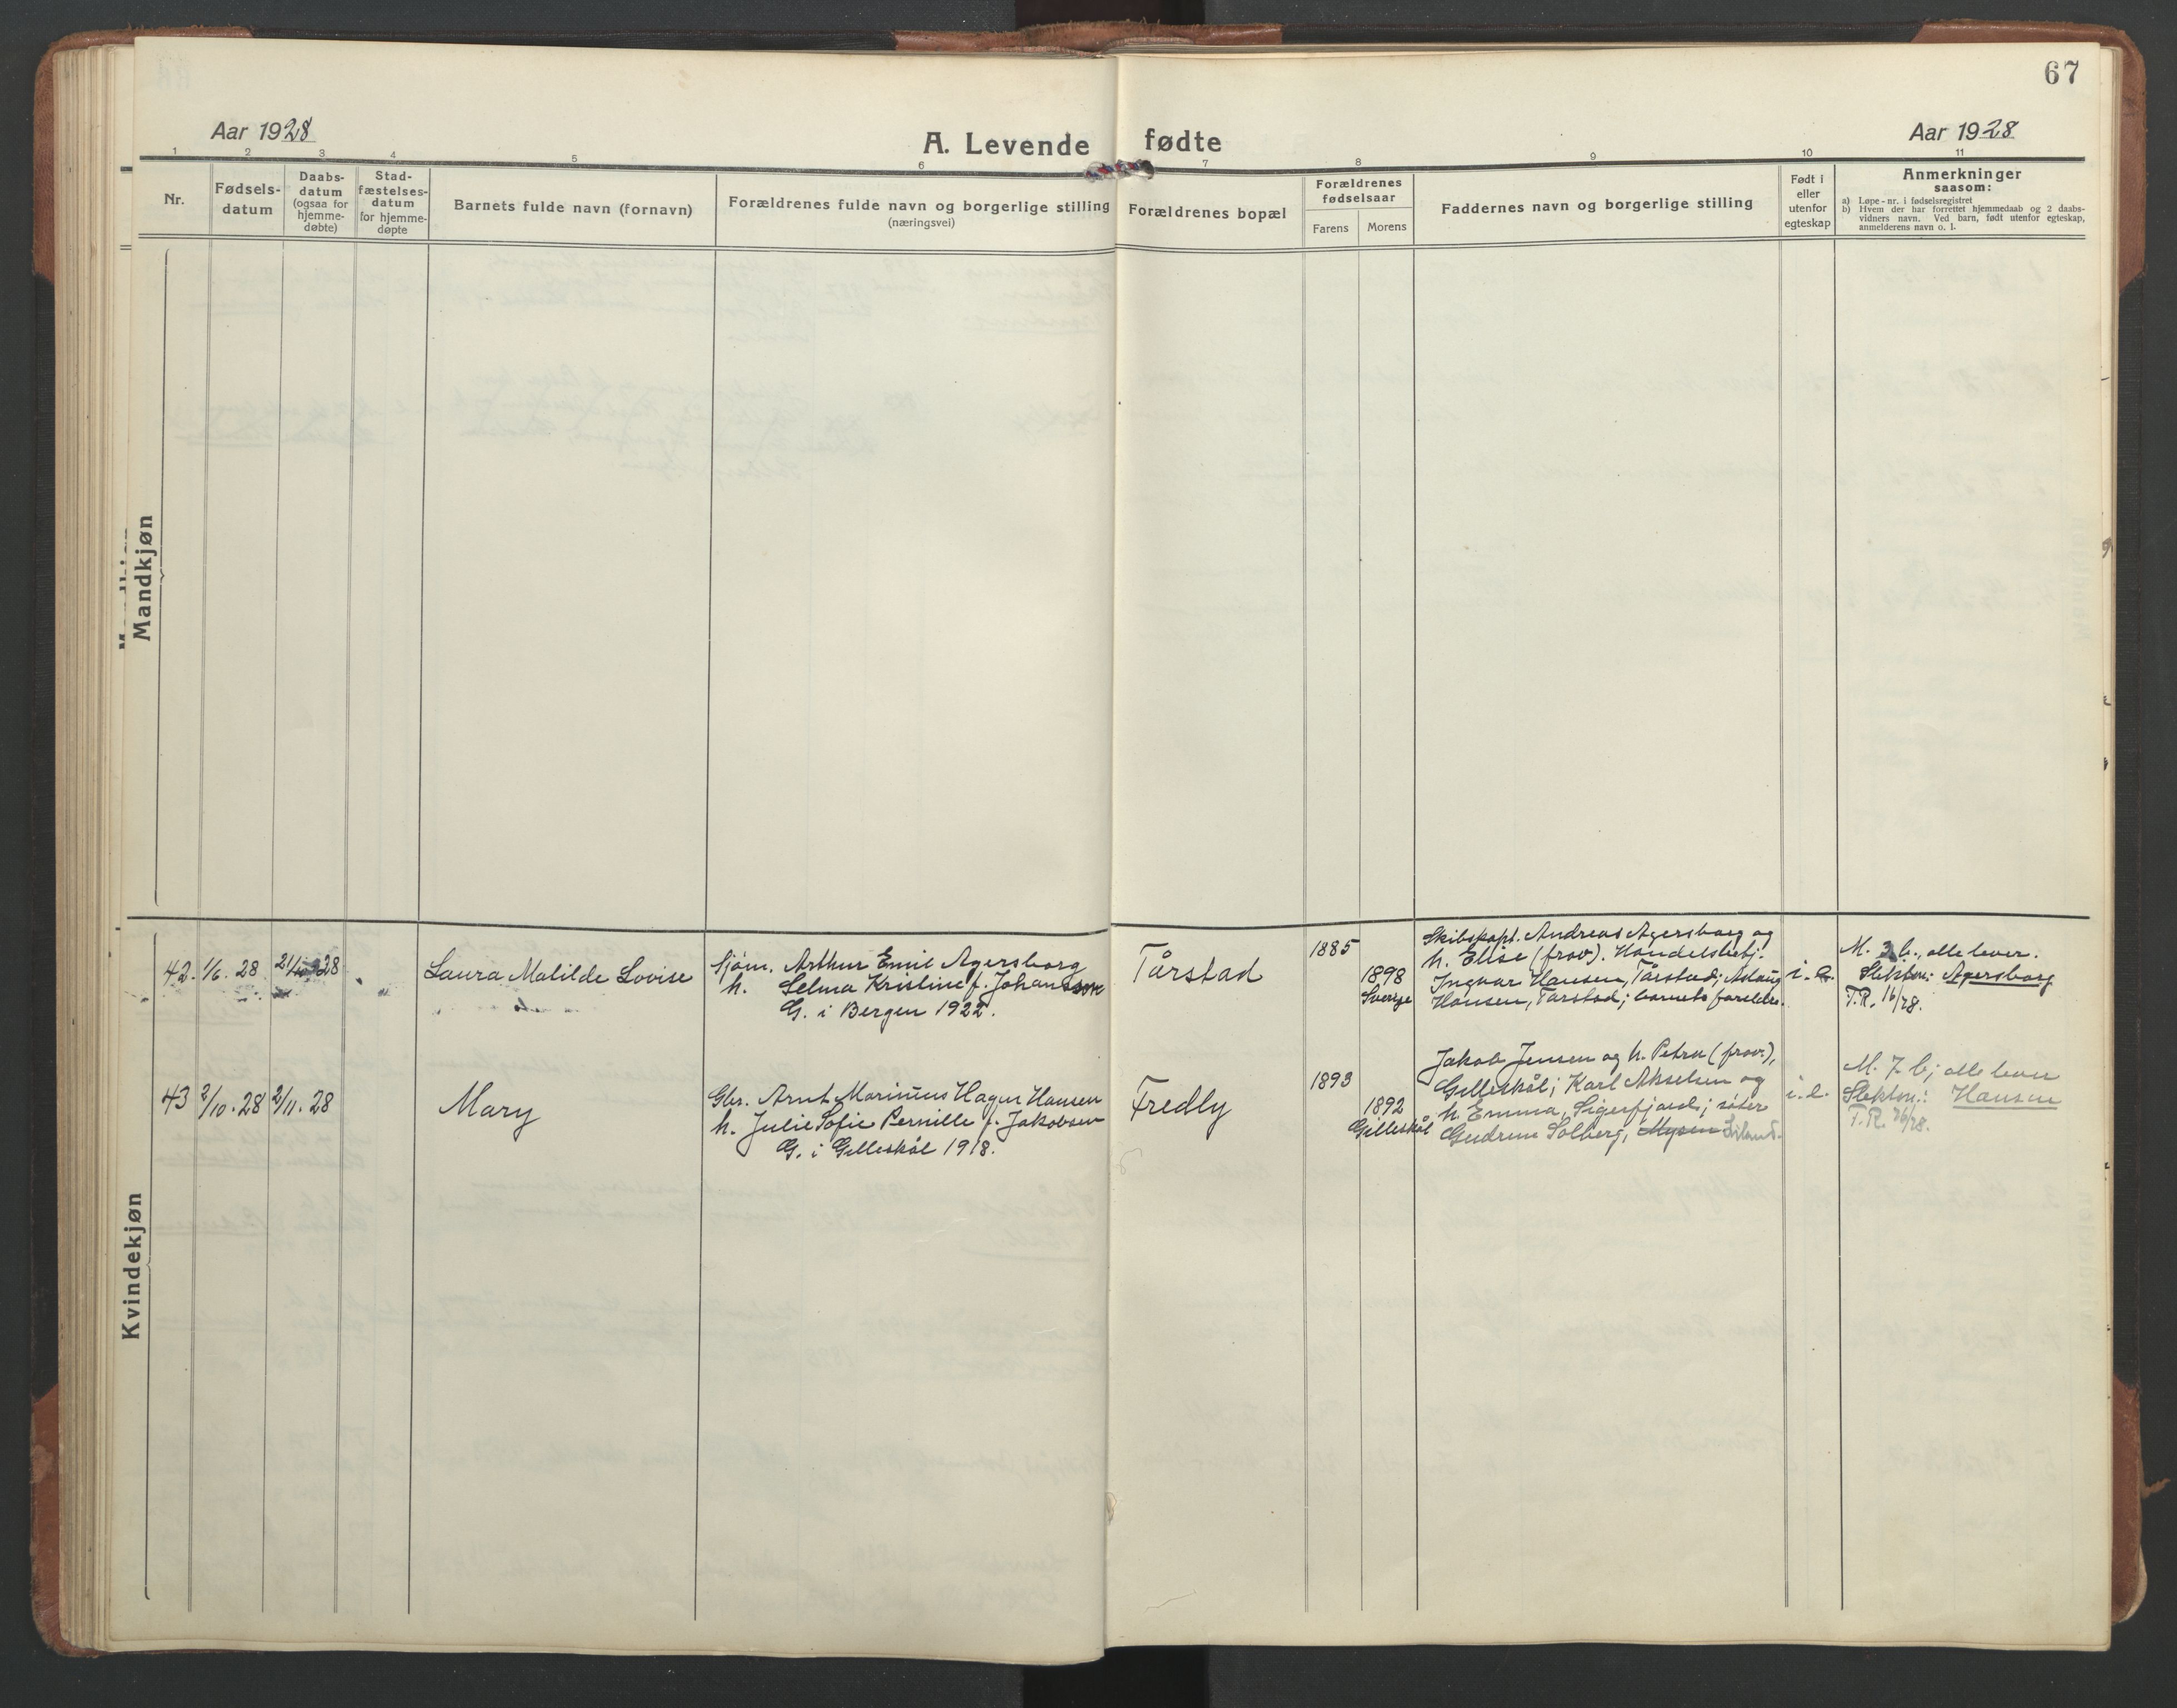 67
Aar 1928
A. Levende fødte
Aar 1928
1 2 3 4 5 6 7 8 9 10 11
Nr.
Fødsels-
datum
Daabs-
datum
(ogsaa for
hjemme-
døbte)
Stad-
fæstelses-
datum
for hjemme-
døpte
Barnets fulde navn (fornavn)
Forældrenes fulde navn og borgerlige stilling
(næringsvei)
Forældrenes bopæl
Forældrenes
fødselsaar
Farens
Morens
Faddernes navn og borgerlige stilling
Født i
eller
utenfor
egteskap
Anmerkninger
saasom:
a) Løpe-nr. i fødselsregistret
b) Hvem der har forrettet hjemmedaab og 2 daabs-
vidners navn. Ved barn, født utenfor egteskap,
anmelderens navn o. l.
Mandkjøn
Kvindekjøn
42. 1/6. 28
28
Laura Matilde Lovise
Sjøm. Arthur Emil Agersborg
h. Selma Kristine f. Johansson
G. i Bergen 1922.
Tårstad
1885
1898
Sverige
Skibskapt. Andreas Agersborg og
h. Elise (frav). Handelsbetj.
Ingvar Hansen, Tårstad; Aslaug
Hansen, Tårstad; barnets foreldre.
i. e.
M. 3 b., alle lever.
Slektsn.: Agersborg
T.R. 16/28.
43 2/10. 28 2/11. 28
Mary
Gbr. Arnt Marinius Hagen Hansen
h. Julie Sofie Pernille f. Jakobsen
G. i Gilleskål 1918.
Fredly
1893
1892
Gilleskål
Jakob Jensen og h. Petra (frav.),
Gilleskål; Karl Akselsen og
h. Emma, Sigerfjord; søster
Gudrun Solberg,
i. e.
M. 7 b; alle lever
Slektsn.: Hansen
T.R. 76/28.